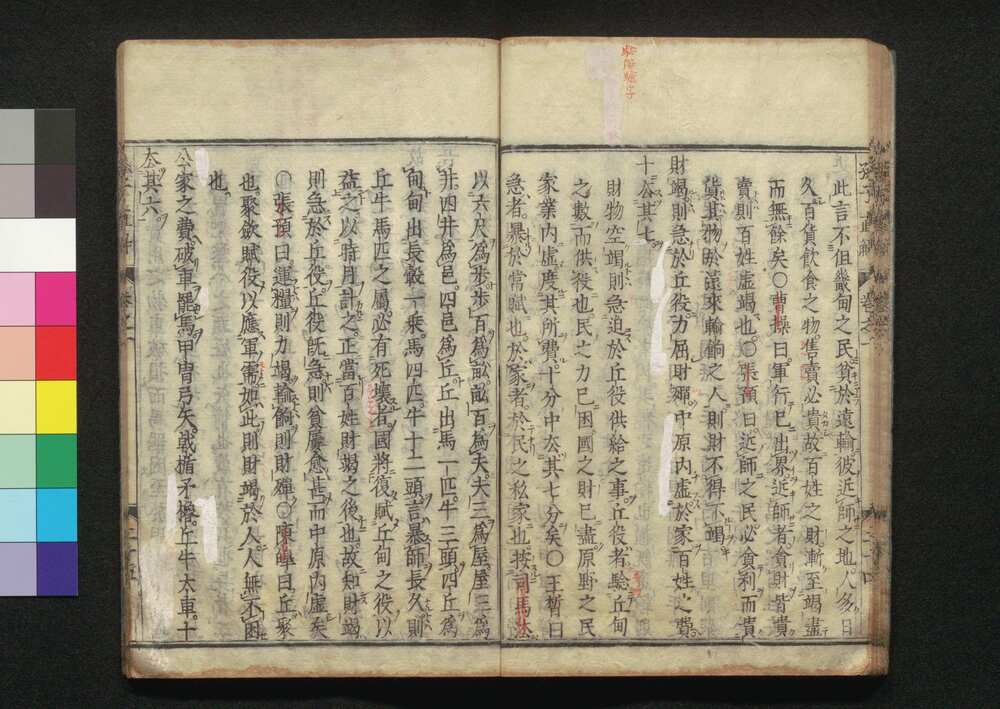 此言不但畿甸之民算於遠輸彼近師之地人多日
久百貨飲食之物售賣必貴故百姓之財漸至竭盡
而無餘矣○曹操曰軍行已出界近師者貪財皆貴
賣則百姓虛竭也○張預曰近師之民必貪利而貴
貨其物於遠來輸餉之人則財不得不竭
財竭則急於丘役力屈財殫中原內虛於家百姓之費
十去其七
財物空竭則急迫於丘役供給之事丘役者驗丘甸
之數而供役也民之力已困國之財已盡原野之民
家業內虛度其所費十分中去其七分矣○王晳曰
急者暴於常賦也於家者於民之私家也按司馬法
以六尺為步步百為畝畝百為夫夫三為屋屋三為
井四井為邑四邑為丘丘出馬一匹牛三頭四丘為
甸甸出長轂一乘馬四匹牛十二頭言暴師長久則
丘牛馬匹之屬必有死壞者國將復賦丘甸之役以
益之以時月計之正當百姓財竭之後也故知財竭
則急於丘役丘役既急則貧屢愈甚而中原內虛矣
○張預曰運糧則力竭輸餉則財殫○陳皥曰丘聚
也聚歛賦役以應軍需如此則財竭於人人無不困
也
公家之費破車罷馬甲冑弓矢戟楯矛櫓丘牛大車十
去其六